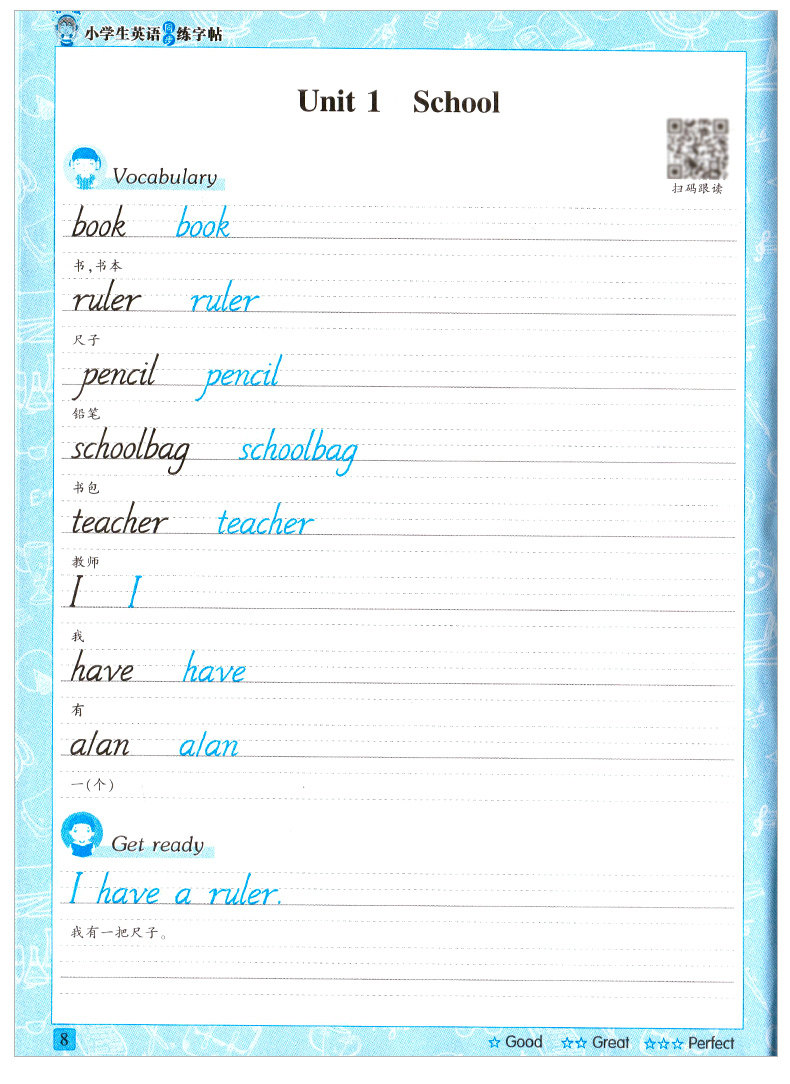 小学生英语同步练字帖
Unit 1 School
扫码跟读
Vocabulary
book book
书,书本
ruler ruler
尺子
pencil pencil
铅笔
schoolbag schoolbag
书包
teacher teacher
教师
I I
我
have have
有
a/an a/an
一(个)
Get ready
I have a ruler.
我有一把尺子。
8
☆ Good ☆☆ Great ☆☆☆ Perfect